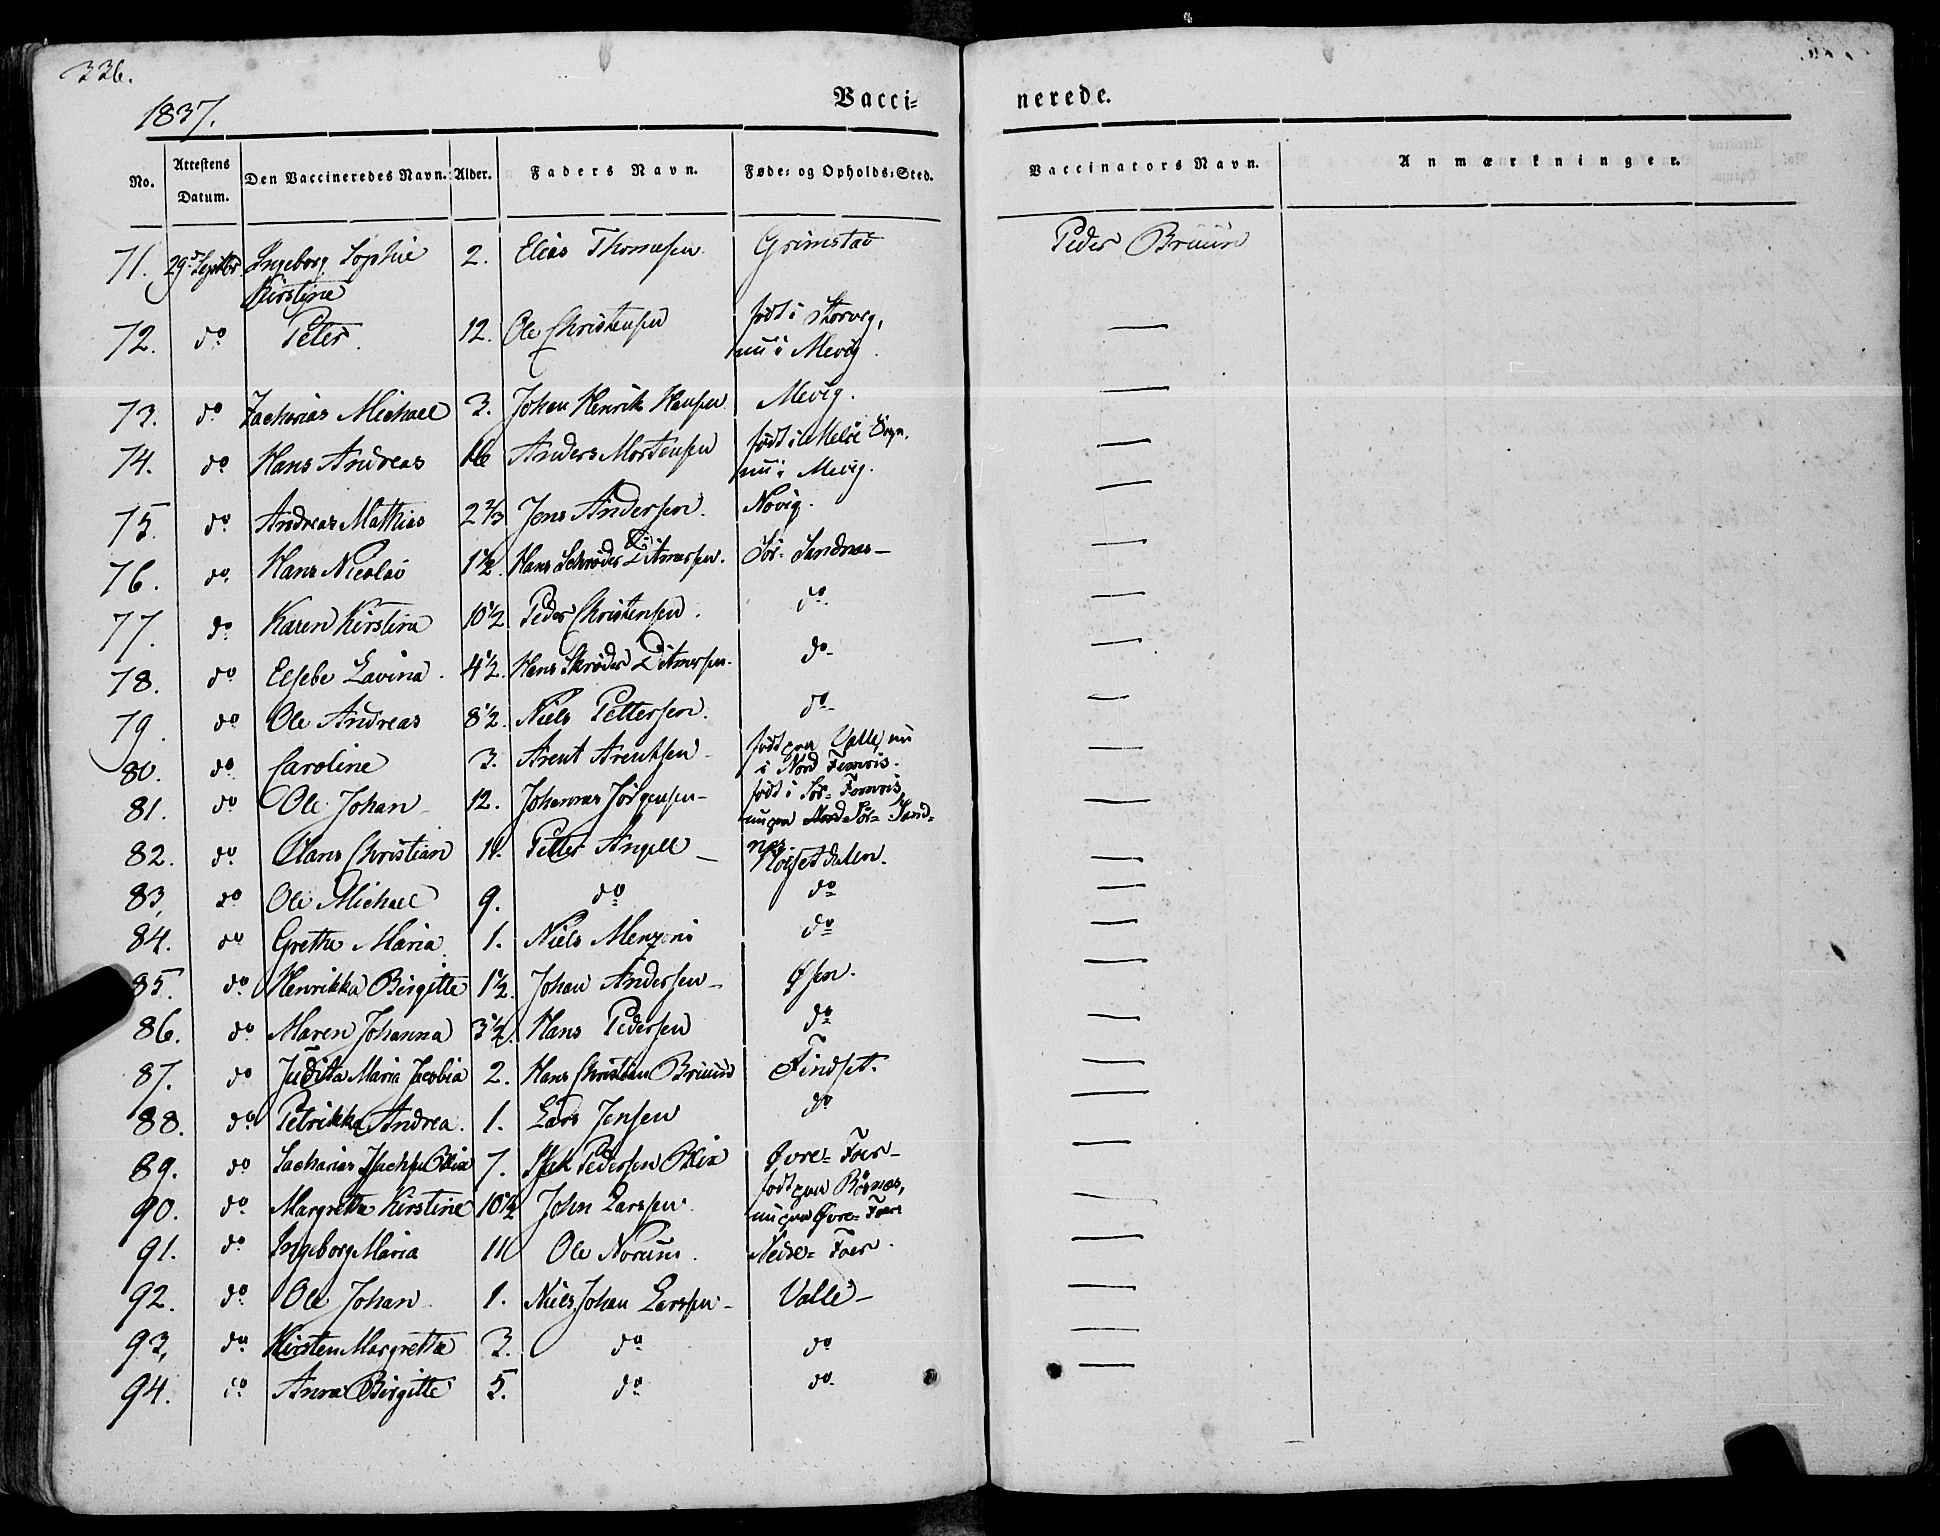 336.
1837.
Vacci= nerede.
No. Attestens Datum. Den Vaccineredes Navn. Alder. Faders Navn. Føde= og Opholds=Sted. Vaccinators Navn. Anmærkninger.
71. 29de Septbr Ingeborg Sophie Kirstine 2. Elias Thomesen Grimstad Peder Bruun
72. do Peter. 12. Ole Christensen født i Storvig, nu i Mevig. —
73. do Zacharias Michael 3. Johan Henrik Hansen Mevig. —
74. do Hans Andreas 16 Anders Mortensen født i Melø Sogn, nu i Mevig. —
75. do Andreas Mathias 2 2/3 Jens Andersen. Novig. —
76. do Hans Nicolai 1 1/2. Hans Schrøder Ditmersen. Sør= Sandnæs —
77. do Karen Kirstina 10 1/2 Peder Christensen. do —
78. do Elsebe Lavina. 4 1/2. Hans Skrøder Ditmersen. do —
79. do Ole Andreas 8 1/2. Niels Pettersen. do —
80. do Caroline 3. Arent Arentsen født paa Valle, nu i Nord Femris. —
81. do Ole Johan 12. Johannes Jørgensen født i Sør= Femris, nu paa Nord Sør= Sandnæs. —
82. do Hans Christian 11. Petter Angell Høgsetdalen. —
83, do Ole Michael 9. do do —
84. do Grethe Maria 1. Niels Menzoni do —
85. do Henrikka Birgitte 1 1/2. Johan Andersen Øsen. —
86. do Maren Johanna 3 1/2. Hans Pedersen do —
87. do Judita Maria Jacobia 2. Hans Christian Bruun Findset. —
88. do Petrikka Andrea. 1. Lars Jensen do —
89. do Zacharias Isachsen Blix 7. Isak Pedersen Blix Øvre= Foer —
90. do Margretha Kirstine 10 1/2 John Larssen. født paa Børnæs, nu paa Øvre= Foer —
91. do Ingeborg Maria 11 Ole Norum. Nedre= Foer. —
92. do Ole Johan 1. Niels Johan Larssen Valle —
93, do Kirsten Margretha 3. do do —
94. do Anna Birgitte 5. do do —